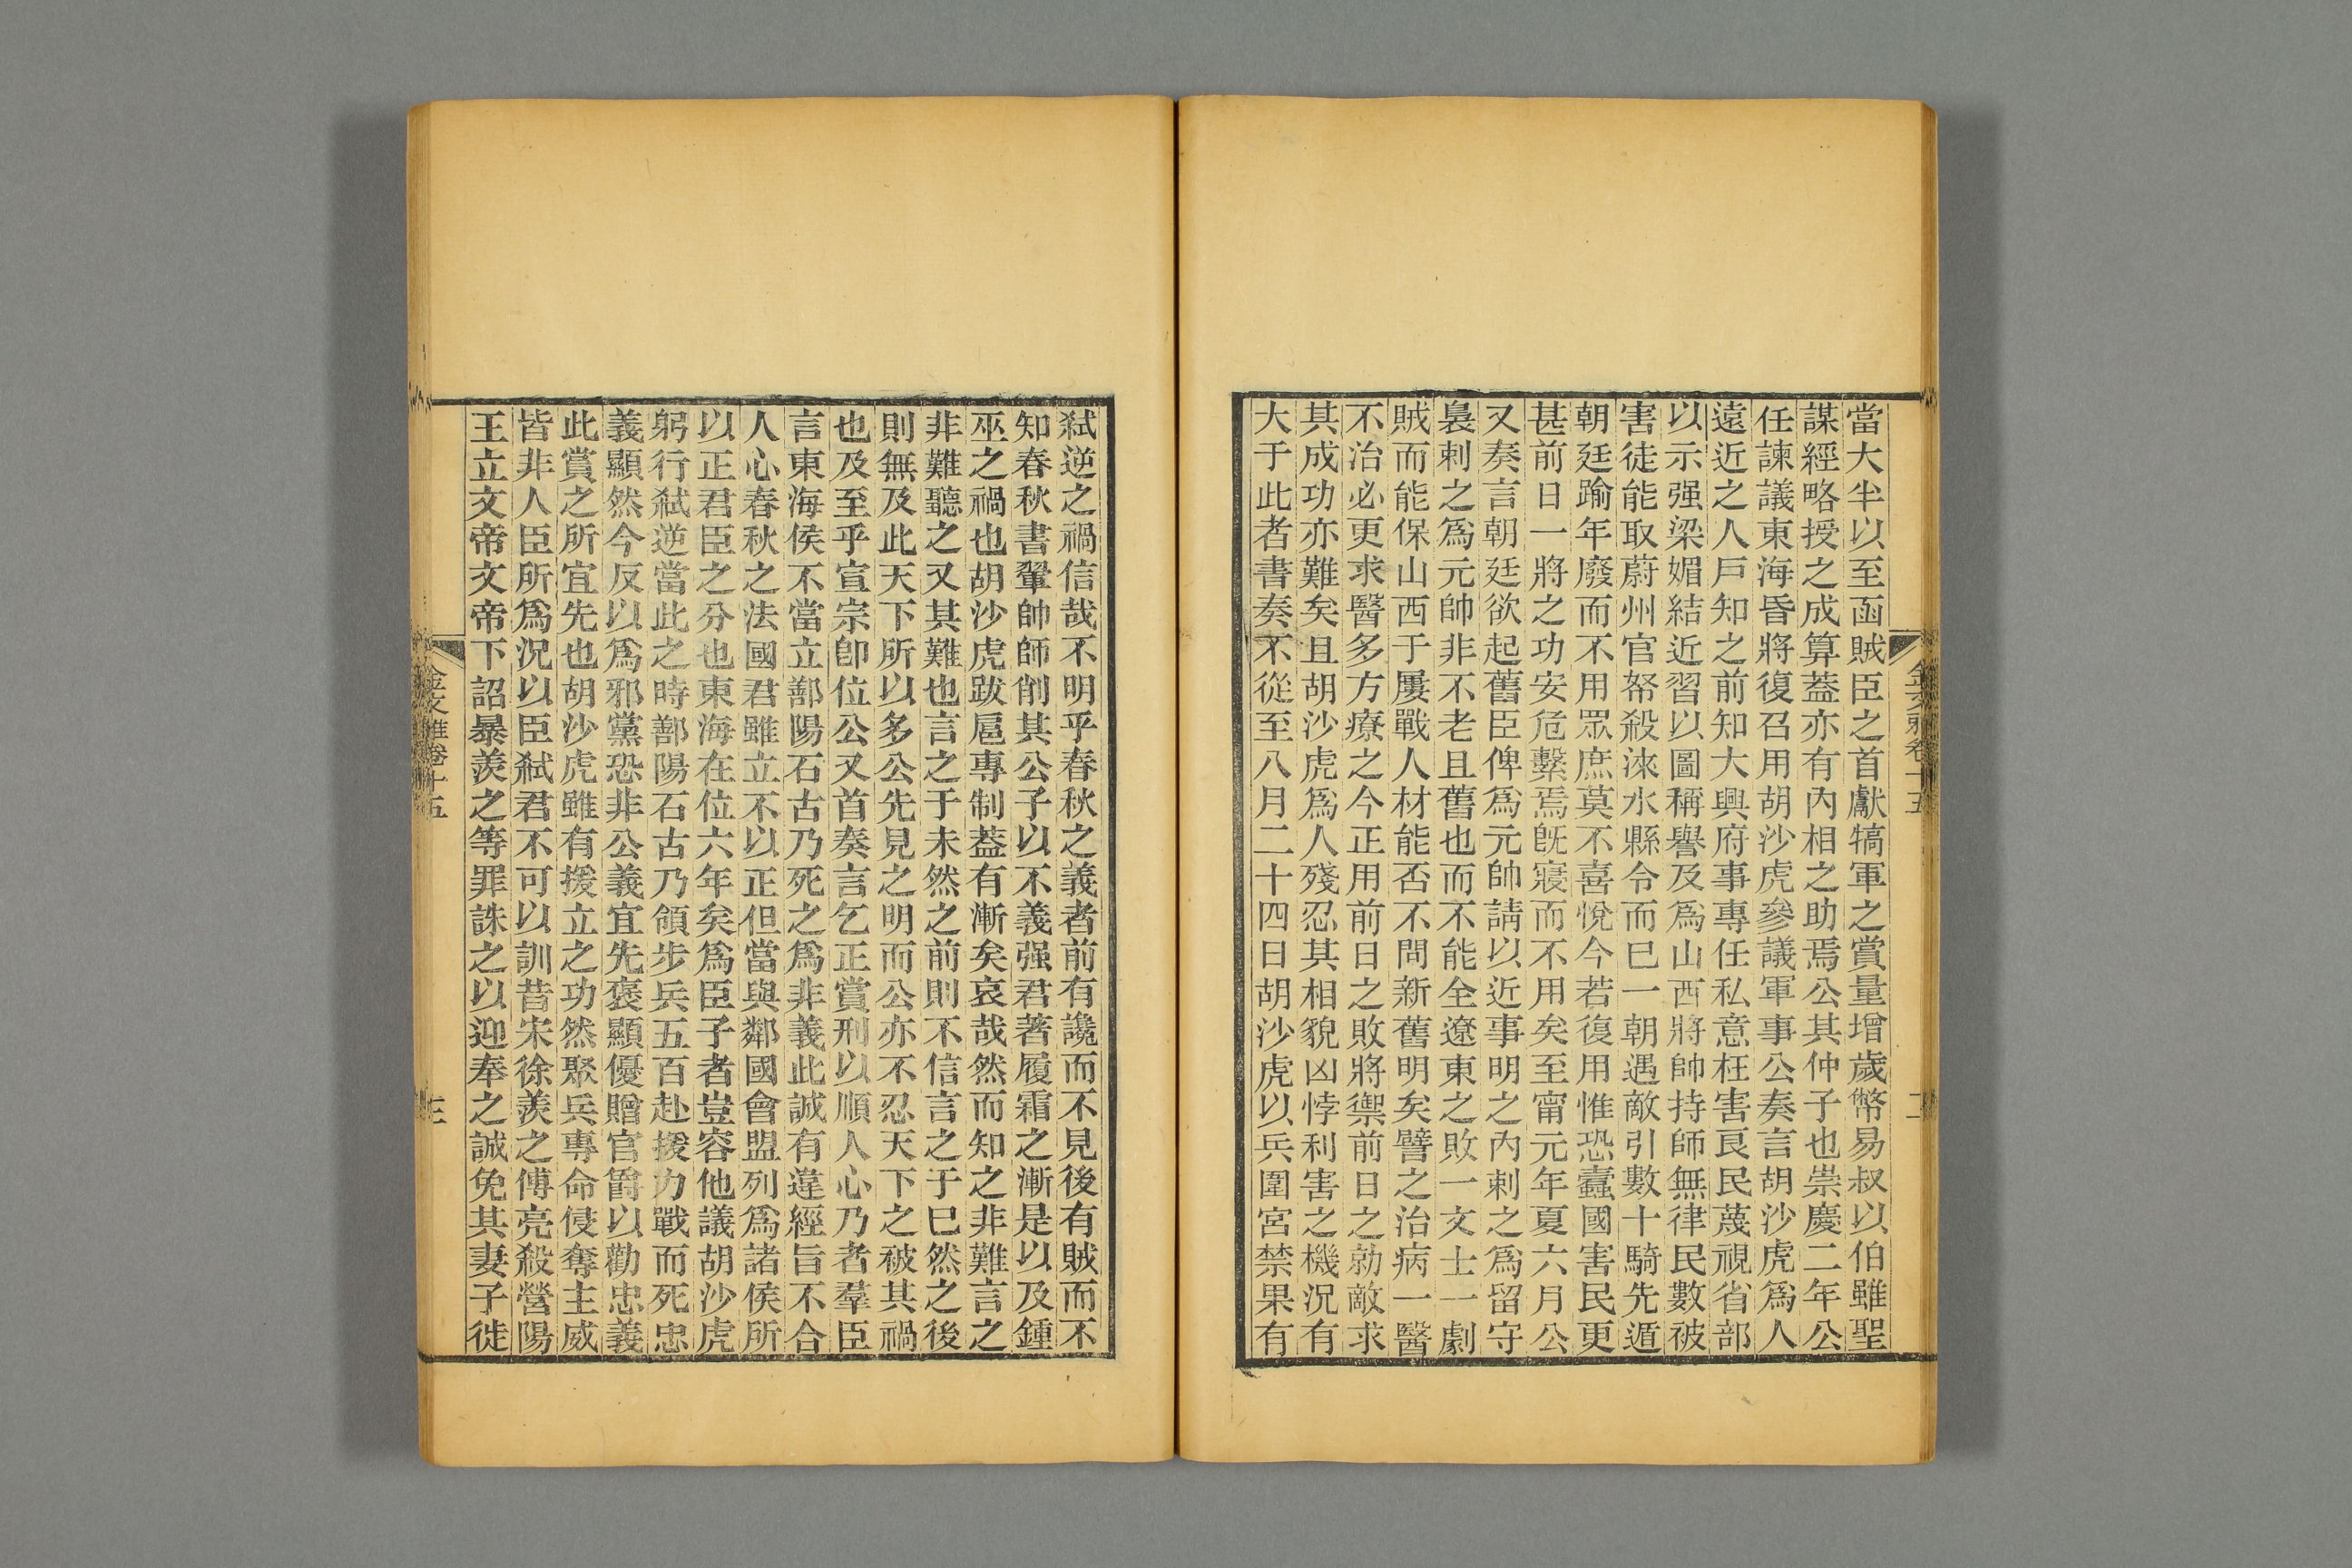 當大半以至函賊臣之首獻犒軍之賞量增歲幣易叔以伯雖聖
謀經略授之成算蓋亦有內相之助焉公其仲子也崇慶二年公
任諫議東海昏將復召用胡沙虎參議軍事公奏言胡沙虎爲人
遠近之人戶知之前知大興府事專任私意枉害良民蔑視省部
以示强梁媚結近習以圖稱譽及爲山西將帥持師無律民數被
害徒能取蔚州官帑殺淶水縣令而已一朝遇敵引數十騎先遁
朝廷踰年廢而不用眾庶莫不喜悅今若復用惟恐蠹國害民更
甚前日一將之功安危繫焉旣寢而不用矣至甯元年夏六月公
又奏言朝廷欲起舊臣俾爲元帥請以近事明之內剌之爲留守
裊剌之爲元帥非不老且舊也而不能全遼東之敗一文士一劇
賊而能保山西于屢戰人材能否不問新舊明矣譬之治病一醫
不治必更求醫多方療之今正用前日之敗將禦前日之勍敵求
其成功亦難矣且胡沙虎爲人殘忍其相貌凶悖利害之機況有
大于此者書奏不從至八月二十四日胡沙虎以兵圍宮禁果有
金文雅卷十五
二
弑逆之禍信哉不明乎春秋之義者前有讒而不見後有賊而不
知春秋書翬帥師削其公子以不義强君著履霜之漸是以及鍾
巫之禍也胡沙虎跋扈專制蓋有漸矣哀哉然而知之非難言之
非難聽之又其難也言之于未然之前則不信言之于已然之後
則無及此天下所以多公先見之明而公亦不忍天下之被其禍
也及至乎宣宗卽位公又首奏言乞正賞刑以順人心乃者羣臣
言東海侯不當立鄯陽石古乃死之爲非義此誠有違經旨不合
人心春秋之法國君雖立不以正但當與鄰國會盟列爲諸侯所
以正君臣之分也東海在位六年矣爲臣子者豈容他議胡沙虎
躬行弑逆當此之時鄯陽石古乃領步兵五百赴援力戰而死忠
義顯然今反以爲邪黨恐非公義宜先褒顯優贈官爵以勸忠義
此賞之所宜先也胡沙虎雖有援立之功然聚兵專命侵奪主威
皆非人臣所爲況以臣弑君不可以訓昔宋徐羨之傅亮殺營陽
王立文帝文帝下詔暴羨之等罪誅之以迎奉之誠免其妻子徙
金文雅卷十五
三